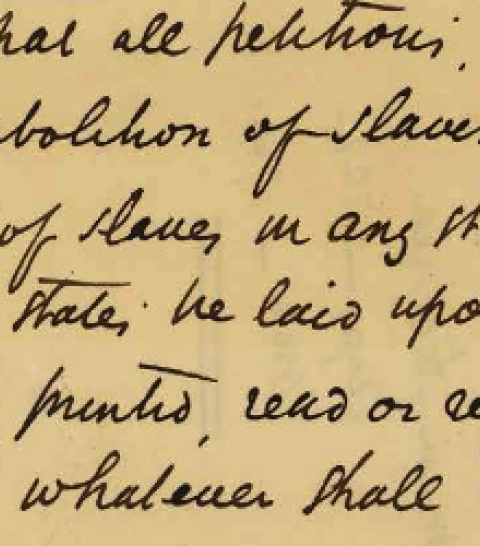 hat all petitions,
bolition of slave
of slaves in any st
states be laid upo
printed, read or re
whatever shall